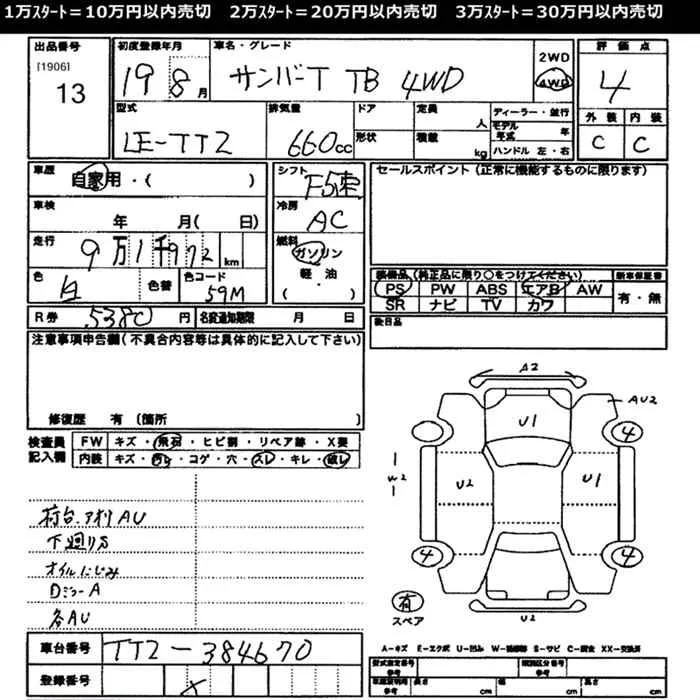 1万ｽﾀｰﾄ＝10万円以内売切 2万ｽﾀｰﾄ＝20万円以内売切 3万ｽﾀｰﾄ＝30万円以内売切
出品番号 初度登録年月 車名・グレード 評価点
[1906] 13 19 8月 サンバーT TB 4WD 2WD 4WD 4
型式 排気量 ドア 定員 人 ディーラー・並行 外装 内装
LE-TT2 660cc 形状 積載 kg モデル年式 年 ハンドル 左・右 C C
車歴 自家用・( ) シフト F5速 セールスポイント (正常に機能するものに限ります)
車検 年 月( 日) 冷房 AC
走行 9万1千972 km 燃料 ガソリン 軽・油 ( ・ )
色 白 色替 色コード 59M
装備品 (純正品に限り○をつけてください) 新車保証書
PS PW ABS エアB AW 有・無
SR ナビ TV カワ
R券 5380 円 名変通知期限 月 日 後日品
注意事項申告欄(不具合内容等は具体的に記入して下さい)
修復歴 有 (箇所 )
検査員記入欄 FW キズ・飛石・ヒビ割・リペア跡・X要
内装 キズ・汚レ・コゲ・穴・スレ・キレ・破レ
荷台.アオリAU
下廻りS
オイルにじみ
DミラーA
各AU
A2
AU2
U1
4
W2
U2
U1
4
4
有
スペア
U2
A-キズ E-エクボ U-凹み W-補修跡 S-サビ C-腐食 XX-交換済
車台番号 TT2-384670
登録番号 X
型式指定番号 参考 類別区分番号 参考
車庫証明用 参考 長さ cm 幅 cm 高さ cm